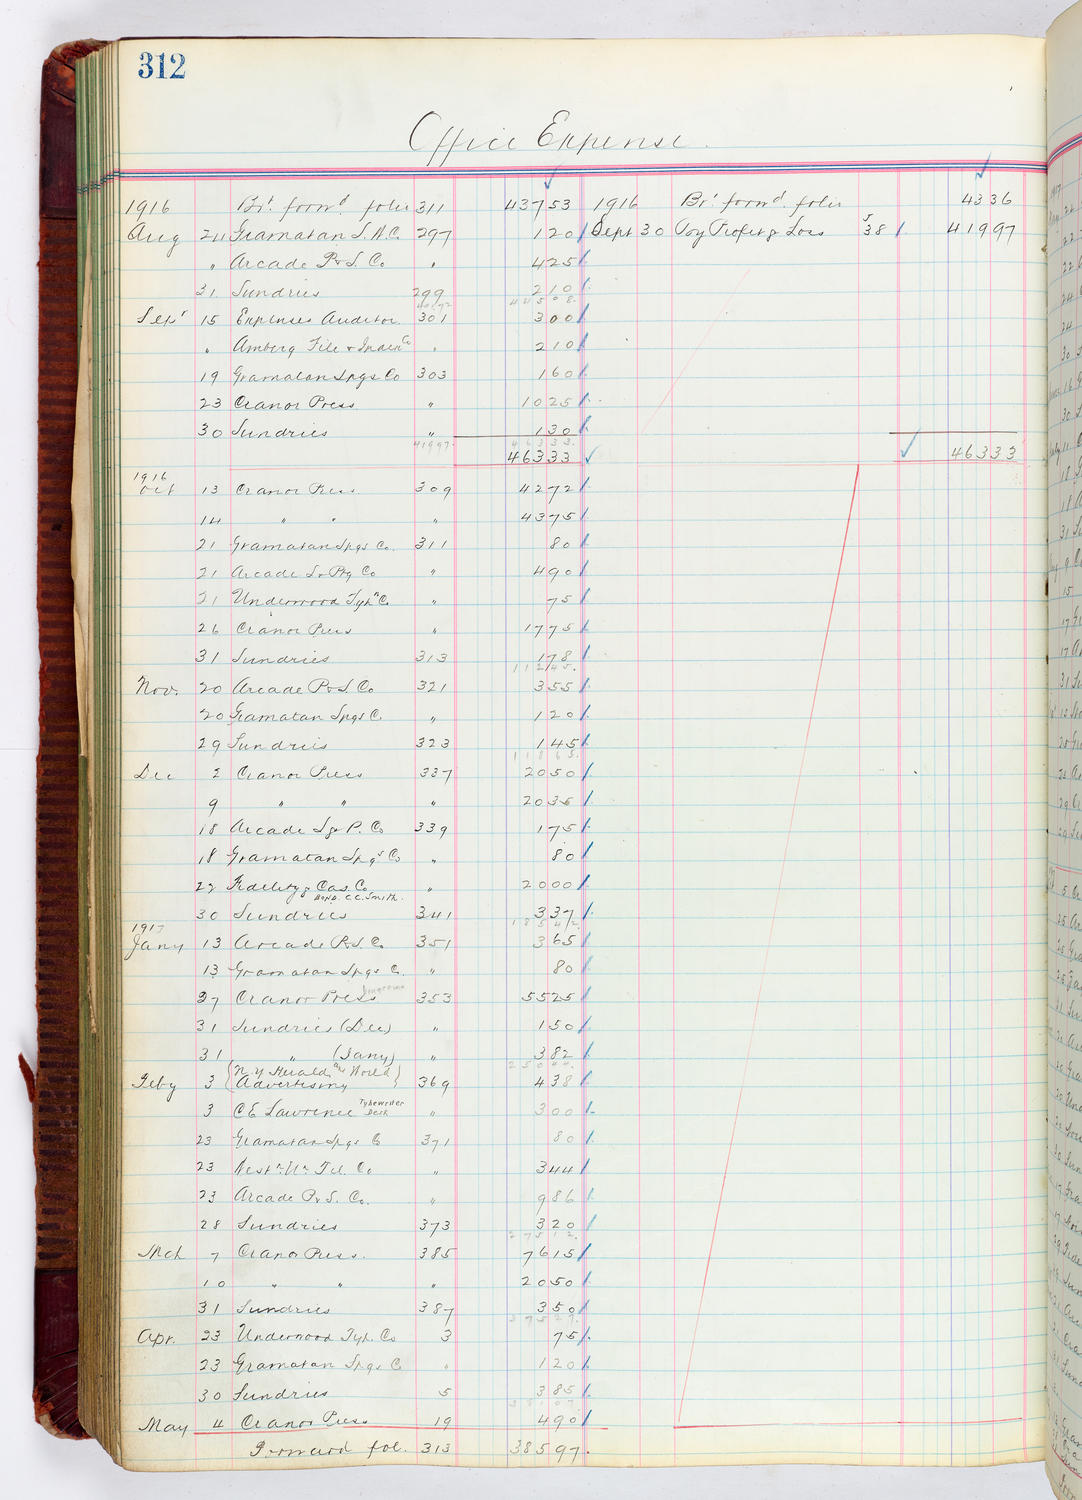 312
Office Expense.
1916 Brt. forwd folio 311 43753 1916 Brt. forwd. folio 4336
Aug 24 Gramatan S.N.C. 297 120 Sept 30 By Profit & Loss 538 41997
" Arcade P & S. Co " 425
31 Sundries 299 210
44508
Sept 15 Expenses Auditor 301 300
" Amberg File & Index Co " 210
19 Gramatan Spgs Co 303 160
23 Cranor Press " 1025
30 Sundries " 130
41997 46333
46333 46333
1916
Oct 13 Cranor Press 309 4272
14 " " " 4375
21 Gramatan Spgs Co. 311 80
21 Arcade S & Ptg Co " 490
21 Underwood Typr Co. " 75
26 Cranor Press " 1775
31 Sundries 313 178
11245
Nov. 20 Arcade P & S. Co 321 355
20 Gramatan Spgs C. " 120
29 Sundries 323 145
11865
Dec 2 Cranor Press 337 2050
9 " " " 2035
18 Arcade S & P. Co 339 175
18 Gramatan Spgs Co " 80
22 Fidelity & Cas. Co " 2000
Bond. C.C. Smith.
30 Sundries 341 337
18542
1917
Jany 13 Arcade P & S. Co 351 365
13 Gramatan Spgs C. " 80
27 Cranor Press 353 5525
31 Sundries (Dec) " 150
31 " (Jany) " 382
25044
Feby 3 { N.Y Herald and World } Advertising 369 438
3 C E Lawrence Typewriter Desk " 300
23 Gramatan Spgs Co 371 80
23 Westn Un Tel. Co " 344
23 Arcade P & S. Co. " 986
28 Sundries 373 320
27512
Mch 7 Cranor Press. 385 7615
10 " " " 2050
31 Sundries 387 350
37527
Apr. 23 Underwood Typ. Co 3 75
23 Gramatan Spgs C " 120
30 Sundries 5 385
38107
May 4 Cranor Press 19 490
Forward fol. 313 38597.